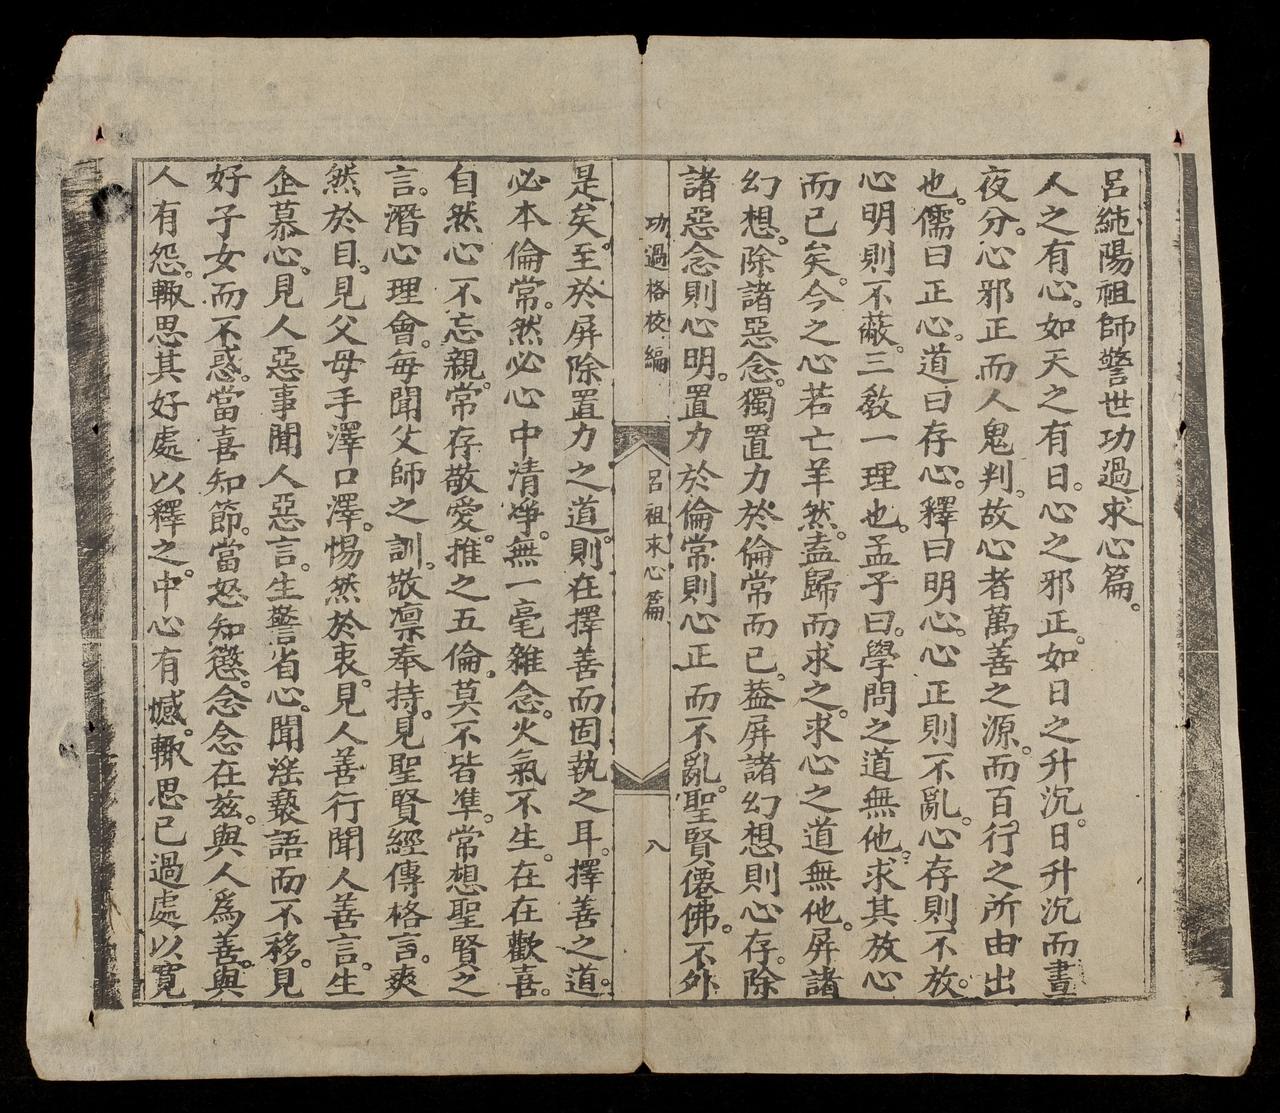 呂純陽祖師警世功過求心篇。
人之有心。如天之有日。心之邪正。如日之升沉。日升沉而晝
夜分。心邪正而人鬼判。故心者萬善之源。而百行之所由出
也。儒曰正心。道曰存心。釋曰明心。心正則不亂。心存則不放。
心明則不蔽。三敎一理也。孟子曰。學問之道無他。求其放心
而已矣。今之心若亡羊然。盍歸而求之。求心之道無他。屏諸
幻想。除諸惡念。獨置力於倫常而已。葢屏諸幻想則心存。除
諸惡念則心明。置力於倫常則心正而不亂。聖賢僊佛。不外
功過格校編
呂祖求心篇
八
是矣。至於屏除置力之道。則在擇善而固執之耳。擇善之道。
必本倫常。然必心中清凈。無一毫雜念。火氣不生。在在歡喜。
自然心不忘親。常存敬愛。推之五倫。莫不皆準。常想聖賢之
言。潛心理會。每聞父師之訓。敬凛奉持。見聖賢經傳格言。爽
然於目。見父母手澤口澤。惕然於衷。見人善行聞人善言。生
企慕心。見人惡事聞人惡言。生警省心。聞淫褻語而不移。見
好子女而不惑。當喜知節。當怒知懲。念念在兹。與人爲善。與
人有怨。輙思其好處以釋之。中心有憾。輙思已過處以寬